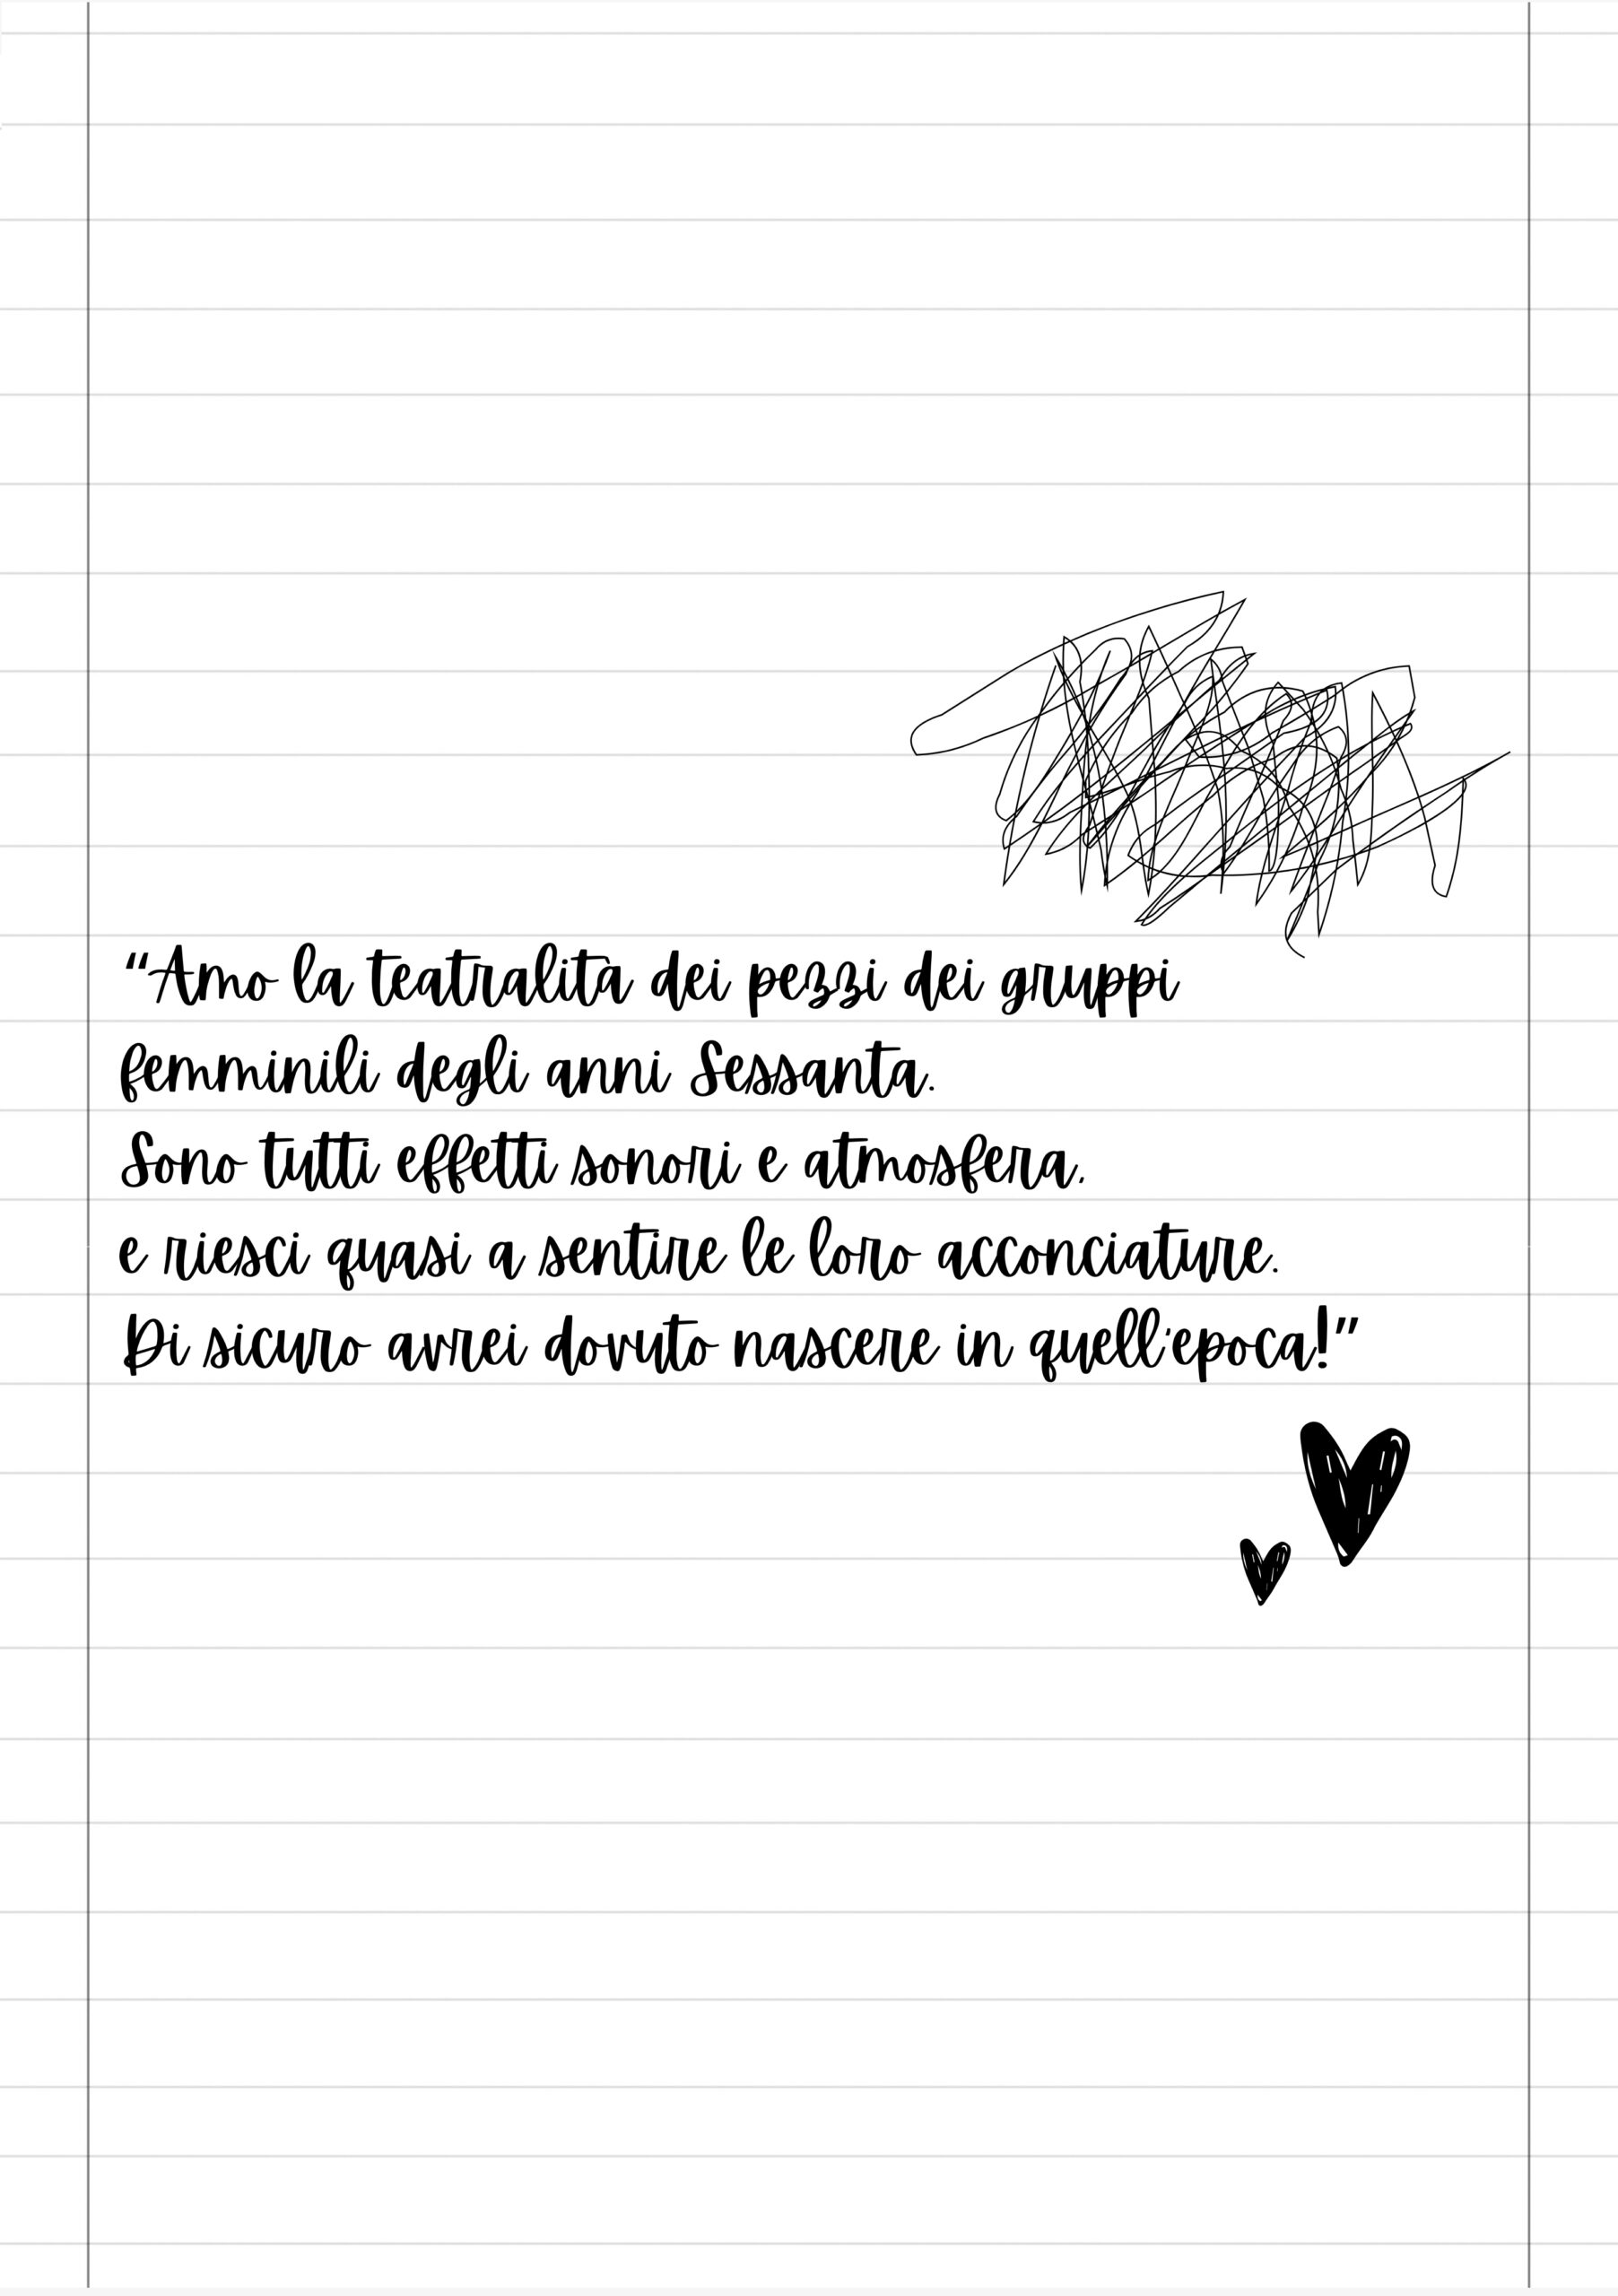 “Amo la teatralità di pezzi di gruppi
femminili degli anni Sessanta.
Sono tutti effetti sonori e atmosfera,
e riesci quasi a sentire le loro acconciature.
Di sicuro avrei dovuto nascere in quell'epoca!”